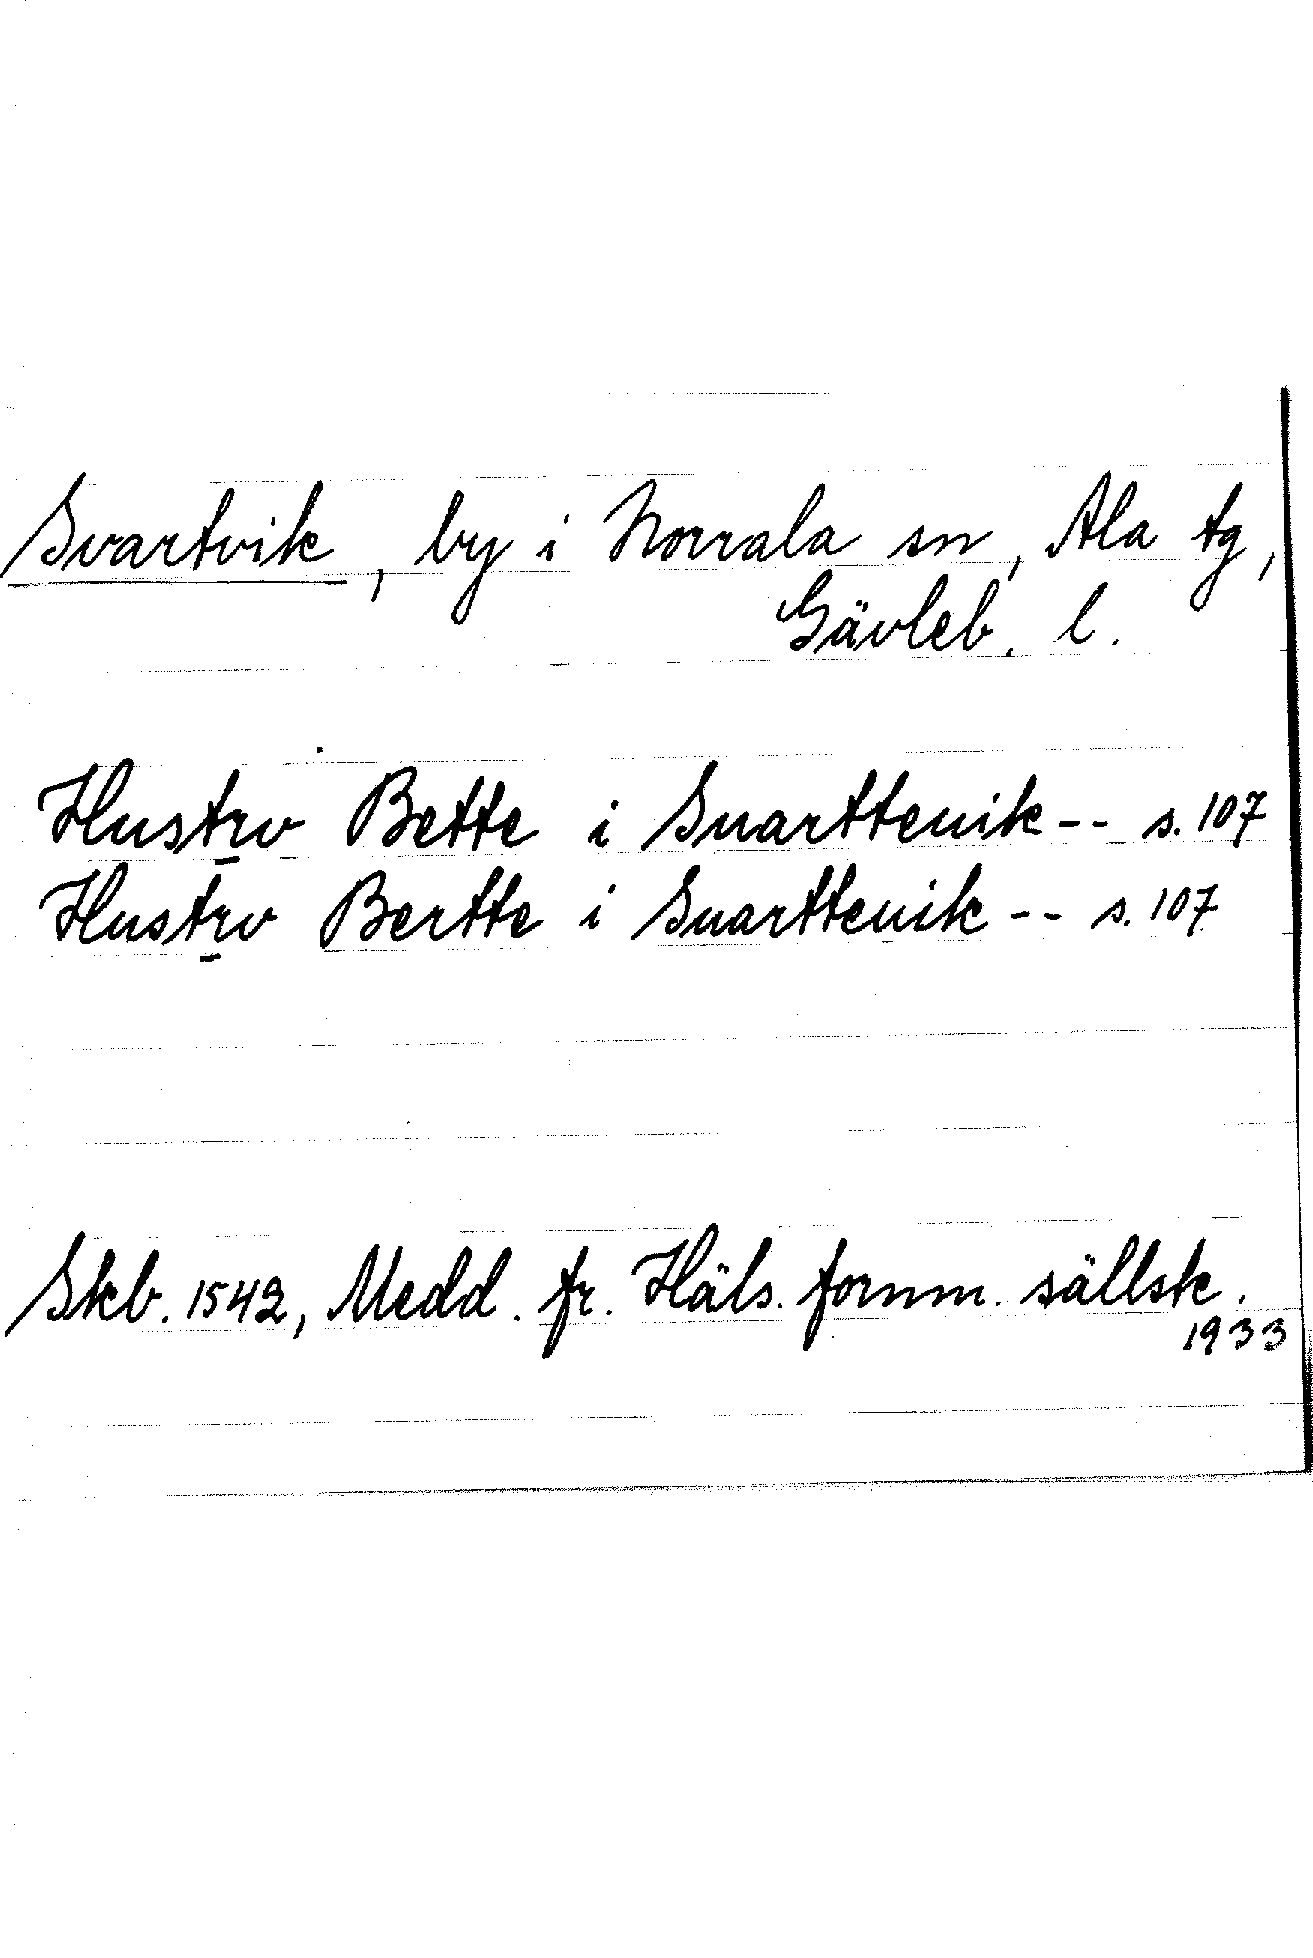 Svartvik, by i Norrala sn, Ala tg,
Gävleb. l.
Hustrv Bette i Suartteuik -- s. 107
Hustrv Bertte i Suartteuik -- s. 107
Skb. 1542, Medd. fr. Häls. fornm. sällsk.
1933